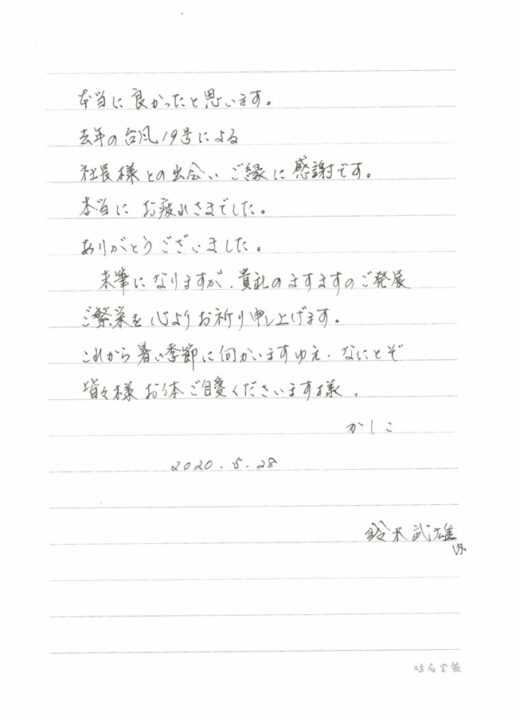 本当に良かったと思います。
去年の台風19号による
社長様との出会い ご縁に感謝です。
本当に お疲れさまでした。
ありがとうございました。
末筆になりますが、貴社のますますのご発展
ご繁栄を心よりお祈り申し上げます。
これから暑い季節に向かいますゆえ、なにとぞ
皆々様 お体ご自愛くださいます様、
かしこ
2020.5.28
鈴木武雄